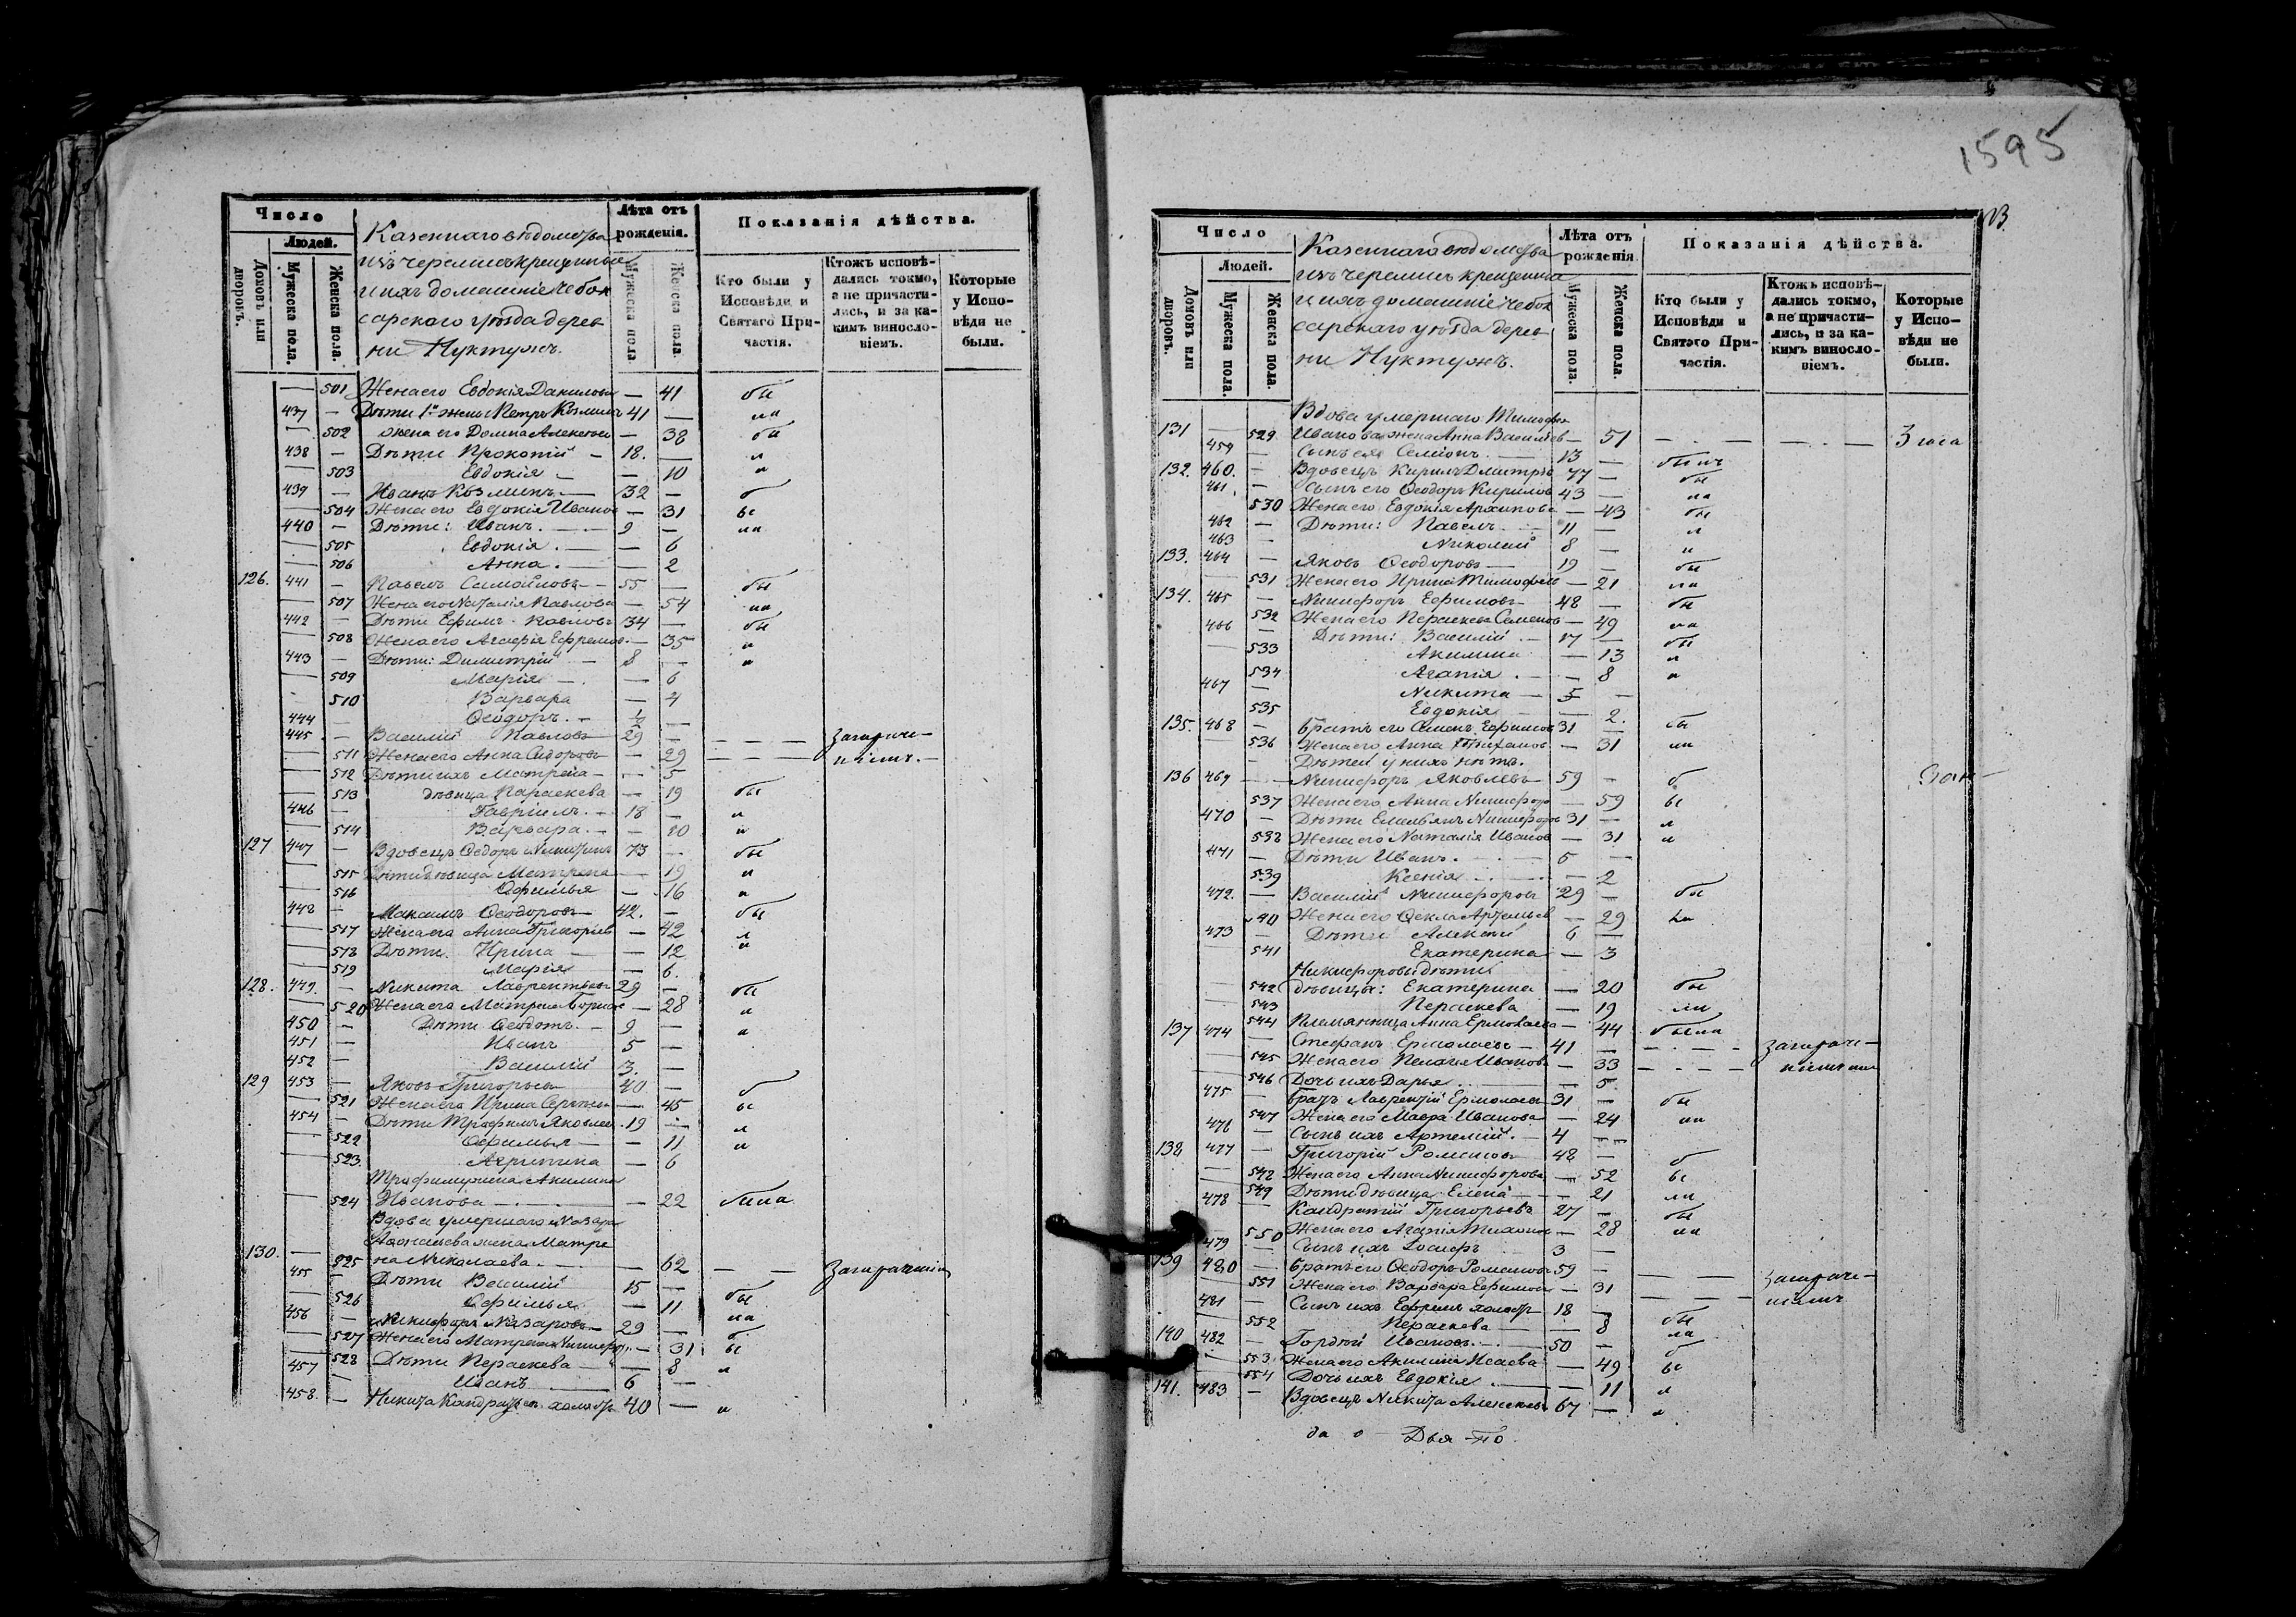 1595
Число
Людей.
Домовъ или дворовъ.
Мужеска пола.
Женска пола.
Казеннаго вѣдомства
изъ черемисъ крещенные
и ихъ домашніе Чебок
сарскаго уѣзда дерев
ни Нуктужъ.
Лѣта отъ рожденія.
Мужеска пола
Женска пола.
Показанія дѣйства.
Кто были у Исповѣди и Святаго Причастія.
Ктожъ исповѣдались токмо, а не причастились, и за какимъ винословіемъ.
Которые у Исповѣди не были.
501 Жена его Евдокія Данилова — 41 бы
437 — Дѣти 1й жены Петръ Козминъ 41 — ли
502 жена его Домна Алексѣева — 38 бы
438 — Дѣти Прокопій — 18. — л
503 Евдокія — — 10 и
439 — Иванъ Козминъ — 32 — б
504 Жена его Евдокія Иванов — 31 ы
440 — Дѣти: Иванъ. — 9 — ли
505 Евдокія. — — 6
506 Анна. — — 2
126. 441 — Павелъ Самойловъ — 55 — бы
507 Жена его Наталія Павлова — 54 ли
442 — Дѣти Ефимъ Павловъ 34 — бы
508 Жена его Агафія Ефремов. — 35 л
443 — Дѣти: Димитрій — 8 — и
509 Марія — — 6
510 Варвара — 4
444 — Ѳеодоръ. — ½ —
445 — Василій Павловъ 29 — — — — За отлуче-
511 Жена его Анна Сидорова — 29 — — — ніемъ.
512 Дѣти ихъ Матрена — — 5
513 дѣвица Параскева — 19 бы
446 — Гавріилъ. — 18 — л
514 Варвара. — — 10 и
127 447 — Вдовецъ Ѳедоръ Никитинъ 73 — бы
515 Дѣти дѣвица Матрена — 19 л
516 Офимья — 16 и
448 — Максимъ Ѳеодоровъ 42. — бы
517 Жена его Анна Григорьев — 42 л
518 Дѣти. Ирина — — 12 и
519 Марія — 6.
128. 449. — Никита Лаврентьевъ 29 — бы
520 Жена его Матрена — 28 л
450 — Дѣти Ѳеодотъ. — 9 — и
451 — Иванъ 5 —
452 — Василій 3. —
129 453 — Яковъ Григорьевъ 40 — б
521 Жена его Ирина Сергѣева — 45 ы
454 — Дѣти Трофимъ Яковлев. 19 — л
522 Офимья — — 11 и
523. Агрипина — 6
Трофимужена Акилина
524 Иванова — — 22 была
Вдова умершаго Назара
Аѳанасьева жена Матре
130. — 525 на Николаева. — — 62 — — За отлученіемъ
455 — Дѣти Василій 15 — бы
526 Офимья — 11 ли
456 — Никифоръ Назаровъ 29 — б
527 Жена его Матрена Никифор. — 31 ы
528 Дѣти Параскева — — 8 л
457 — Иванъ 6 —
458. — Никита Кондратьев. холостъ 40 — и
Число
Людей.
Домовъ или дворовъ.
Мужеска пола
Женска пола.
Казеннаго вѣдомства
изъ черемисъ крещенные
и ихъ домашніе Чебок
сарскаго уѣзда дерев
ни Нуктужъ.
Лѣта отъ рожденія
Мужеска пола.
Женска пола.
Показанія дѣйства.
Кто были у Исповѣди и Святаго Причастія.
Ктожъ исповѣдались токмо, а не причастились, и за какимъ винословіемъ.
Которые у Исповѣди не были.
Вдова умершаго Тимофея
131 — 529 Иванова жена Анна Васильев — 51 — . — — . —
459 — Сынъ ея Семіонъ. 13 — былъ
132. 460. — Вдовецъ Кирилъ Дмитріев 77 — бы
461 Сынъ его Ѳеодоръ Кирилов 43 — ли
530 Жена его Евдокія Архипова — 43 бы
462 — Дѣти: Павелъ 11 — л
463 — Николай 8 — и
133. 464 — Яковъ Ѳеодоровъ 19 — бы
531 Жена его Ирина Тимофѣев — 21 ли
134. 465 — Никифоръ Ефимовъ 48 — бы
532 Жена его Пераскева Семенов — 49 ли
466 — Дѣти: Василій — 17 — бы
533 Акилина — 13 л
534 Агапія. — 8 и
467 — Никита — 5 —
535 Евдокія — 2.
135. 468 — Братъ его Семенъ Ефимов 31 — бы
536 Жена его Анна — 31 ли
Дѣтей у нихъ нѣтъ.
136 469 — Никифоръ Яковлевъ 59 — б
537 Жена его Анна Никифоро — 59 ы
470 — Дѣти Емельянъ Никифоров 31 — л
538 Жена его Наталія Иванов — 31 и
471 — Дѣти Иванъ. — 5 —
539 Ксенія — 2
472. — Василій Никифоров 29 — бы
540 Жена его Ѳекла Артемьев — 29 ли
473 — Дѣти Алексѣй 6 —
541 Екатерина — 3
Никифоровы дѣти
542 дѣвицы: Екатерина — 20 бы
543 Пераскева — 19 ли
544 Племянница Анна Ермолаева — 44 была
137 474 — Стефанъ Ермолаевъ — 41 — — . — . — За отлуче-
545 Жена его Пелагея Иванов — 33 — . — . — ніемъ
546 Дочь ихъ Дарья — 5.
475 — Братъ Лаврентій Ермолаев 31 — бы
547 Жена его Мавра Иванова — 24 ли
476 — Сынъ ихъ Артемій. — 4 —
138 477 — Григорій Романовъ 48 — б
548 Жена его Анна Никифорова — 52 ы
549 Дѣти дѣвица Елена — 21 ли
478 — Кондратій Григорьевъ 27 — бы
550 Жена его Агапія Тихонов — 28 ли
479 — Сынъ ихъ Іосифъ 3 —
139 480 — Братъ его Ѳеодоръ Романов 59 — — — За отлуче-
551 Жена его Варвара Ефимов — 31 — — ніемъ
481 — Сынъ ихъ Ефремъ холост 18 — бы
552 Пераскева — 8 ли
140 482 — Гордѣй Ивановъ. — 50 — б
553. Жена его Акилина Исаева — 49 ы
554 Дочь ихъ Евдокія — 11 л
141. 483 — Вдовецъ Никита Алексѣев 67 — и